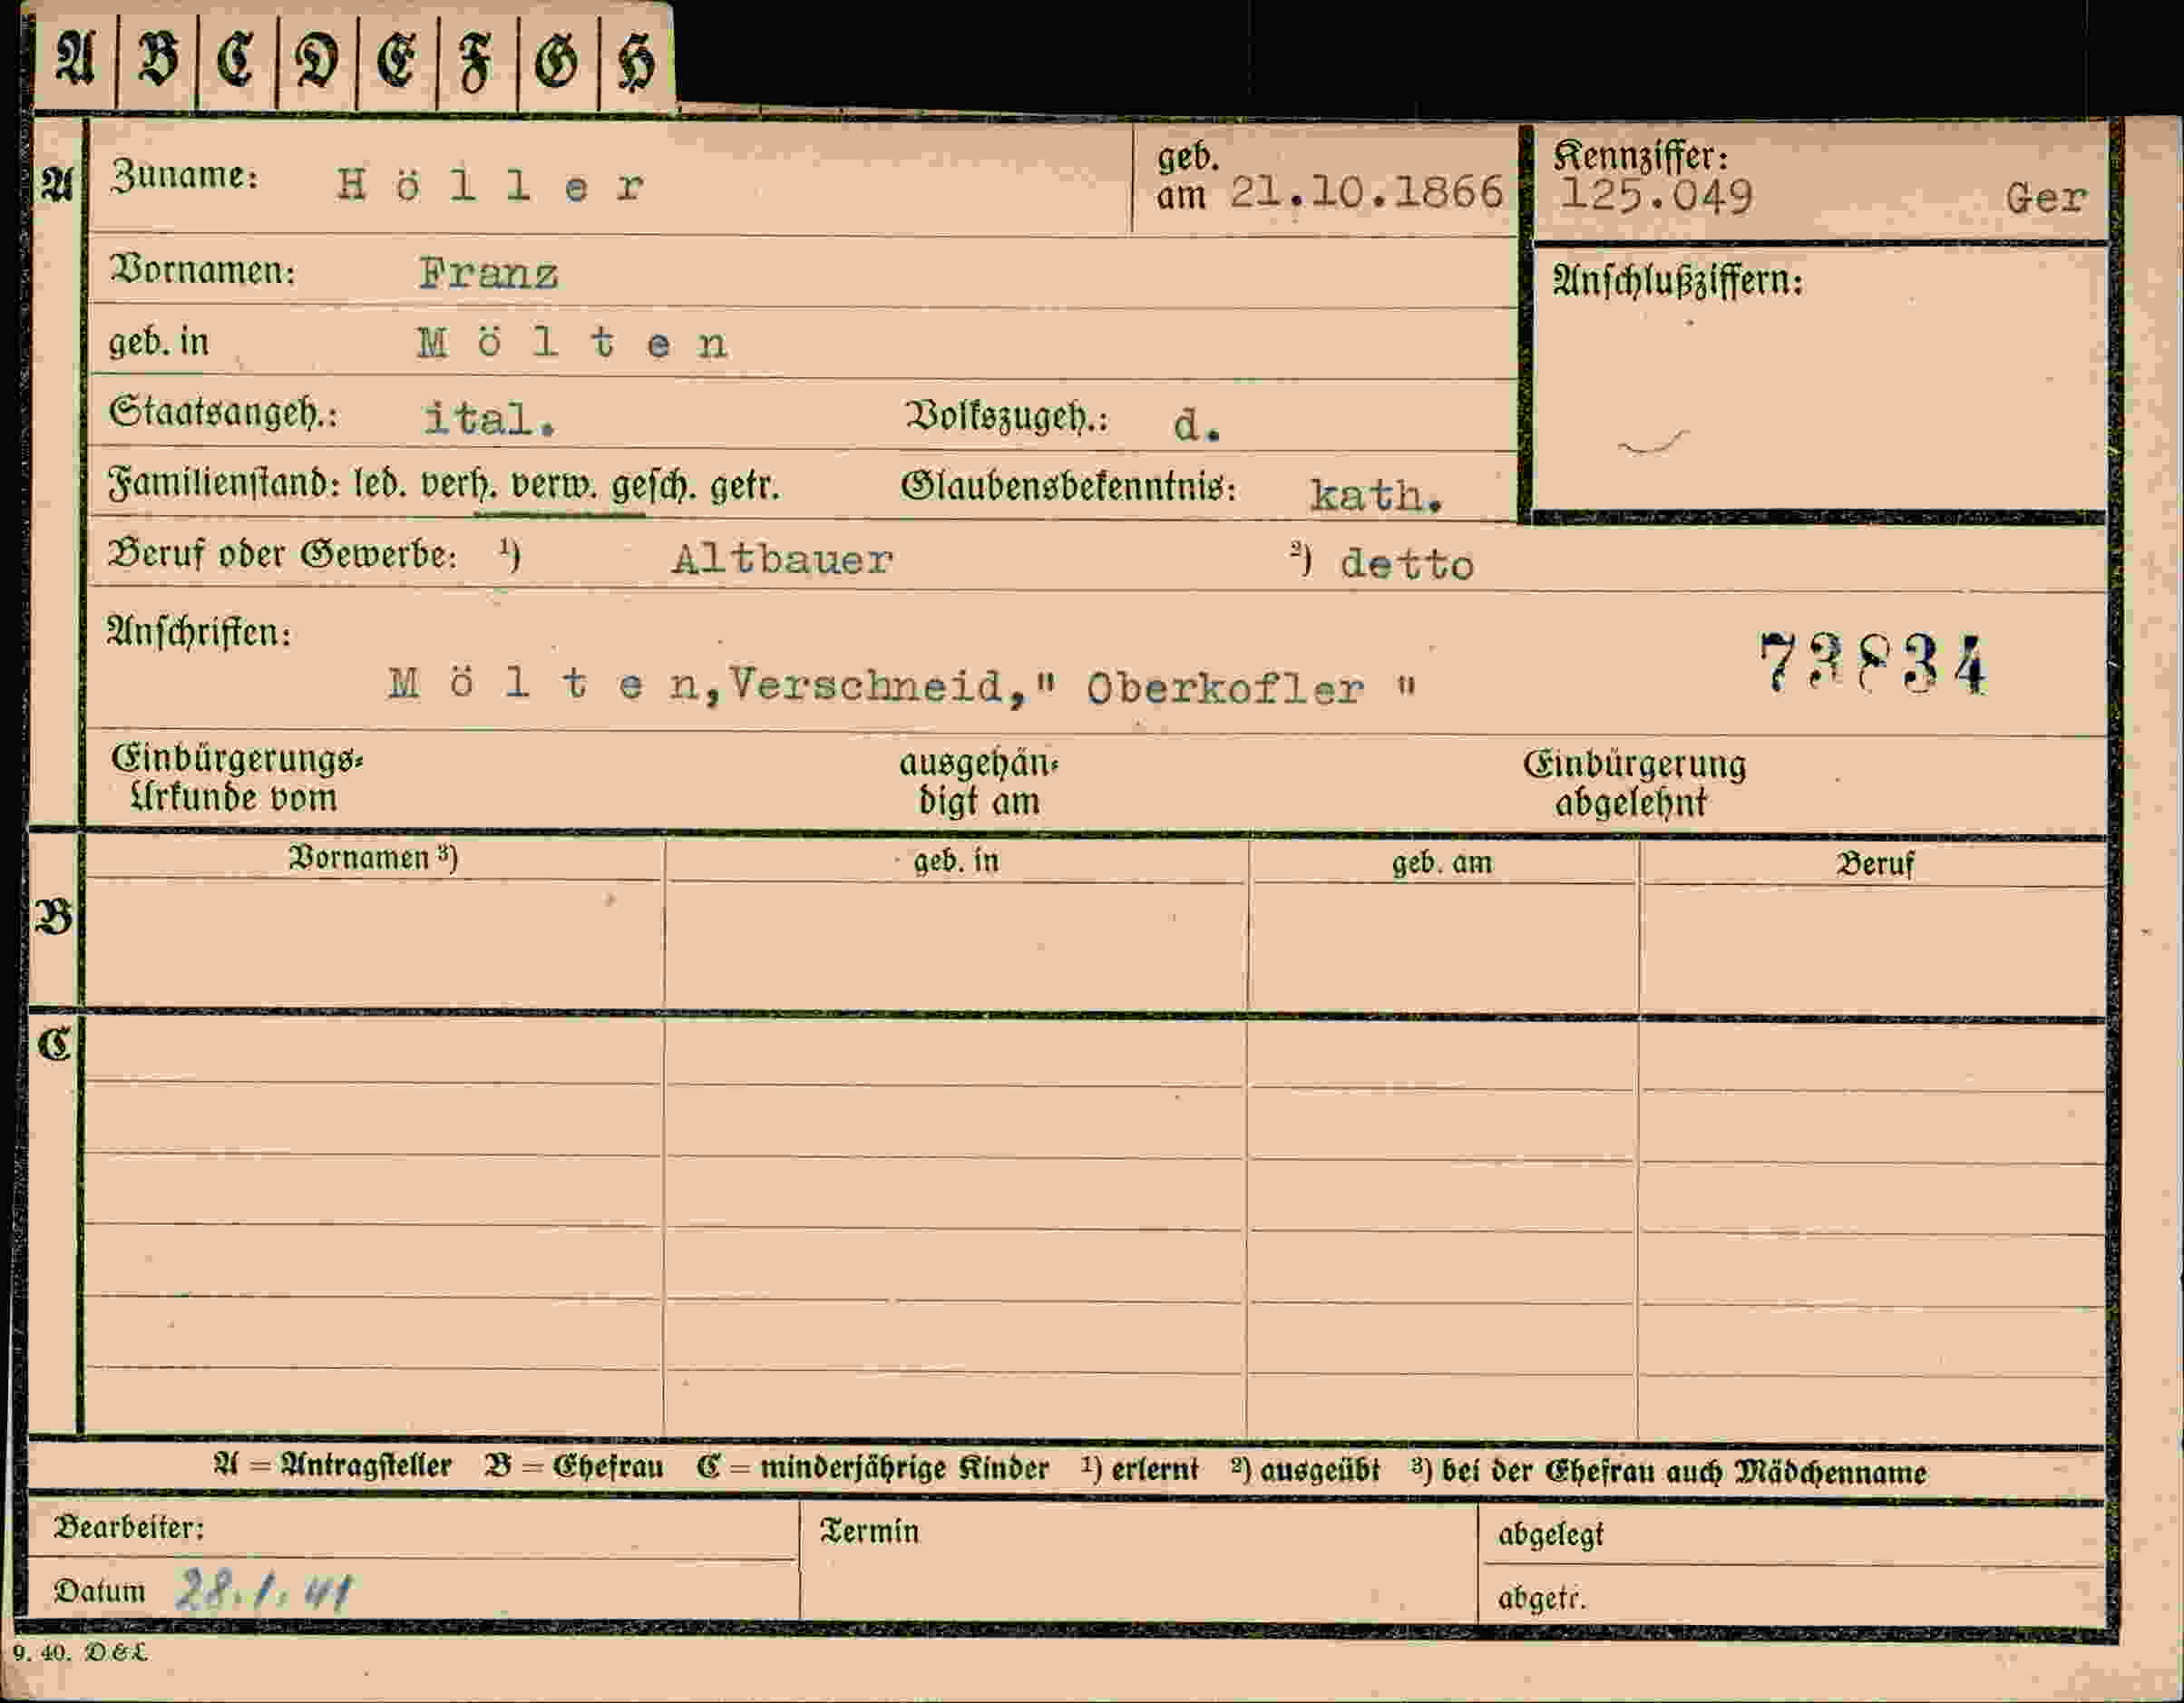 A B C D E F G H
A Zuname: Höller geb. am 21.10.1866 Kennziffer: 125.049 Ger
Vornamen: Franz Anschlußziffern:
geb. in Mölten
Staatsangeh.: ital. Volkszugeh.: d.
Familienstand: led. verh. verw. gesch. getr. Glaubensbekenntnis: kath.
Beruf oder Gewerbe: ¹) Altbauer ²) detto
Anschriften:
Mölten, Verschneid, " Oberkofler " 73834
Einbürgerungs-Urkunde vom ausgehän-digt am Einbürgerung abgelehnt
Vornamen ³) geb. in geb. am Beruf
B
C
A = Antragsteller B = Ehefrau C = minderjährige Kinder ¹) erlernt ²) ausgeübt ³) bei der Ehefrau auch Mädchenname
Bearbeiter: Termin abgelegt
Datum 28.1.41 abgetr.
9. 40. D & L